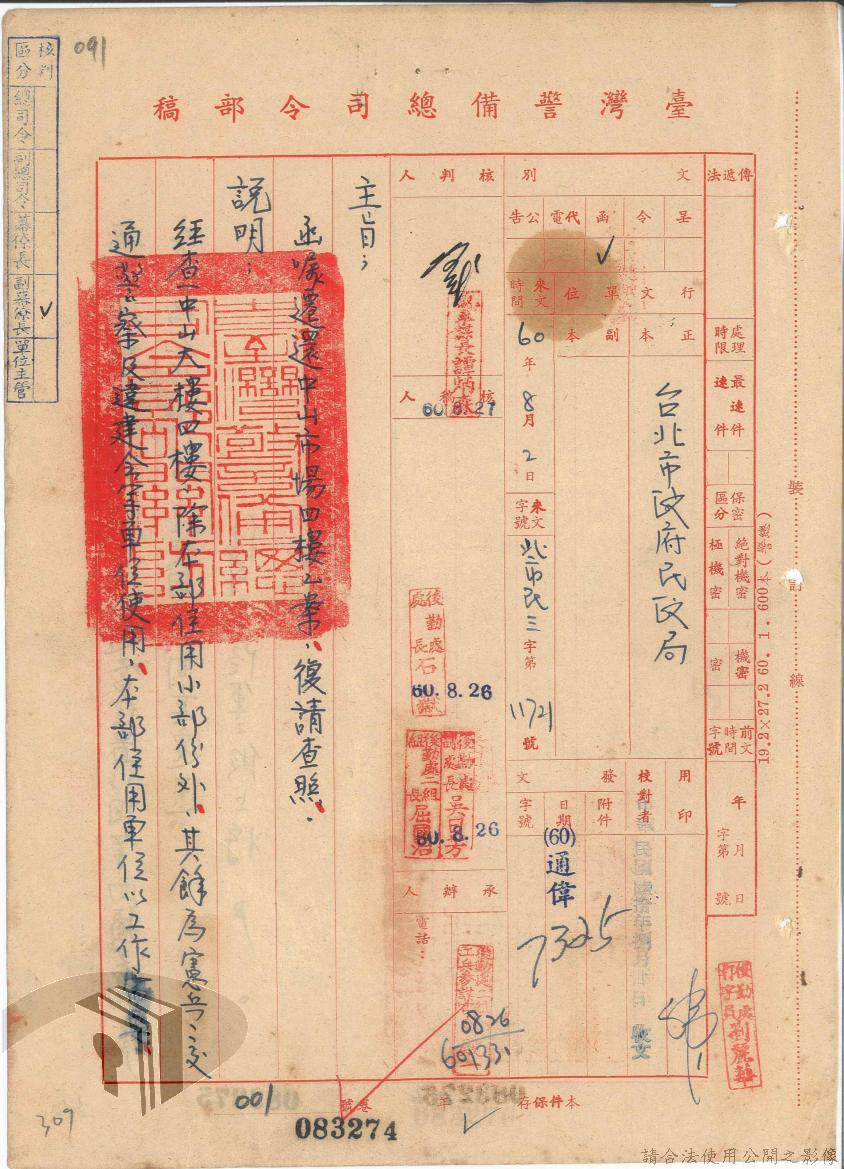 091
核判區分
總司令
副總司令
幕僚長
副幕僚長
單位主管
臺灣警備總司令部稿
傳遞法
處理時限
最速件
速件
保密區分
絕對機密
極機密
機密
密
前文時間字號
年月日
字第號
文別
呈
令
函
代電
公告
行文單位
正本
副本
台北市政府民政局
來文時間
60年8月2日
來文字號
北市民三字第11721號
用印
校對者
發文
附件
日期
字號
(60)
通偉
7325
核判人
60.8.27
核稿人
後勤處處長石
60.8.26
後勤處副處長吳
後勤處二組組長屈國治
60.8.26
承辦人
電話:
0826
601331
主旨:
函囑遷還中山市場四樓乙案,復請查照。
說明:
經查「中山大樓四樓」除本部使用小部份外,其餘為憲兵、交
通警察及違建會等單位使用,本部使用單位以工作
裝訂線
19.2×27.2 60. 1. 600本
後勤處打字員劉麗華
本件保存年
卷號
001
083274
309
請合法使用公開之影像